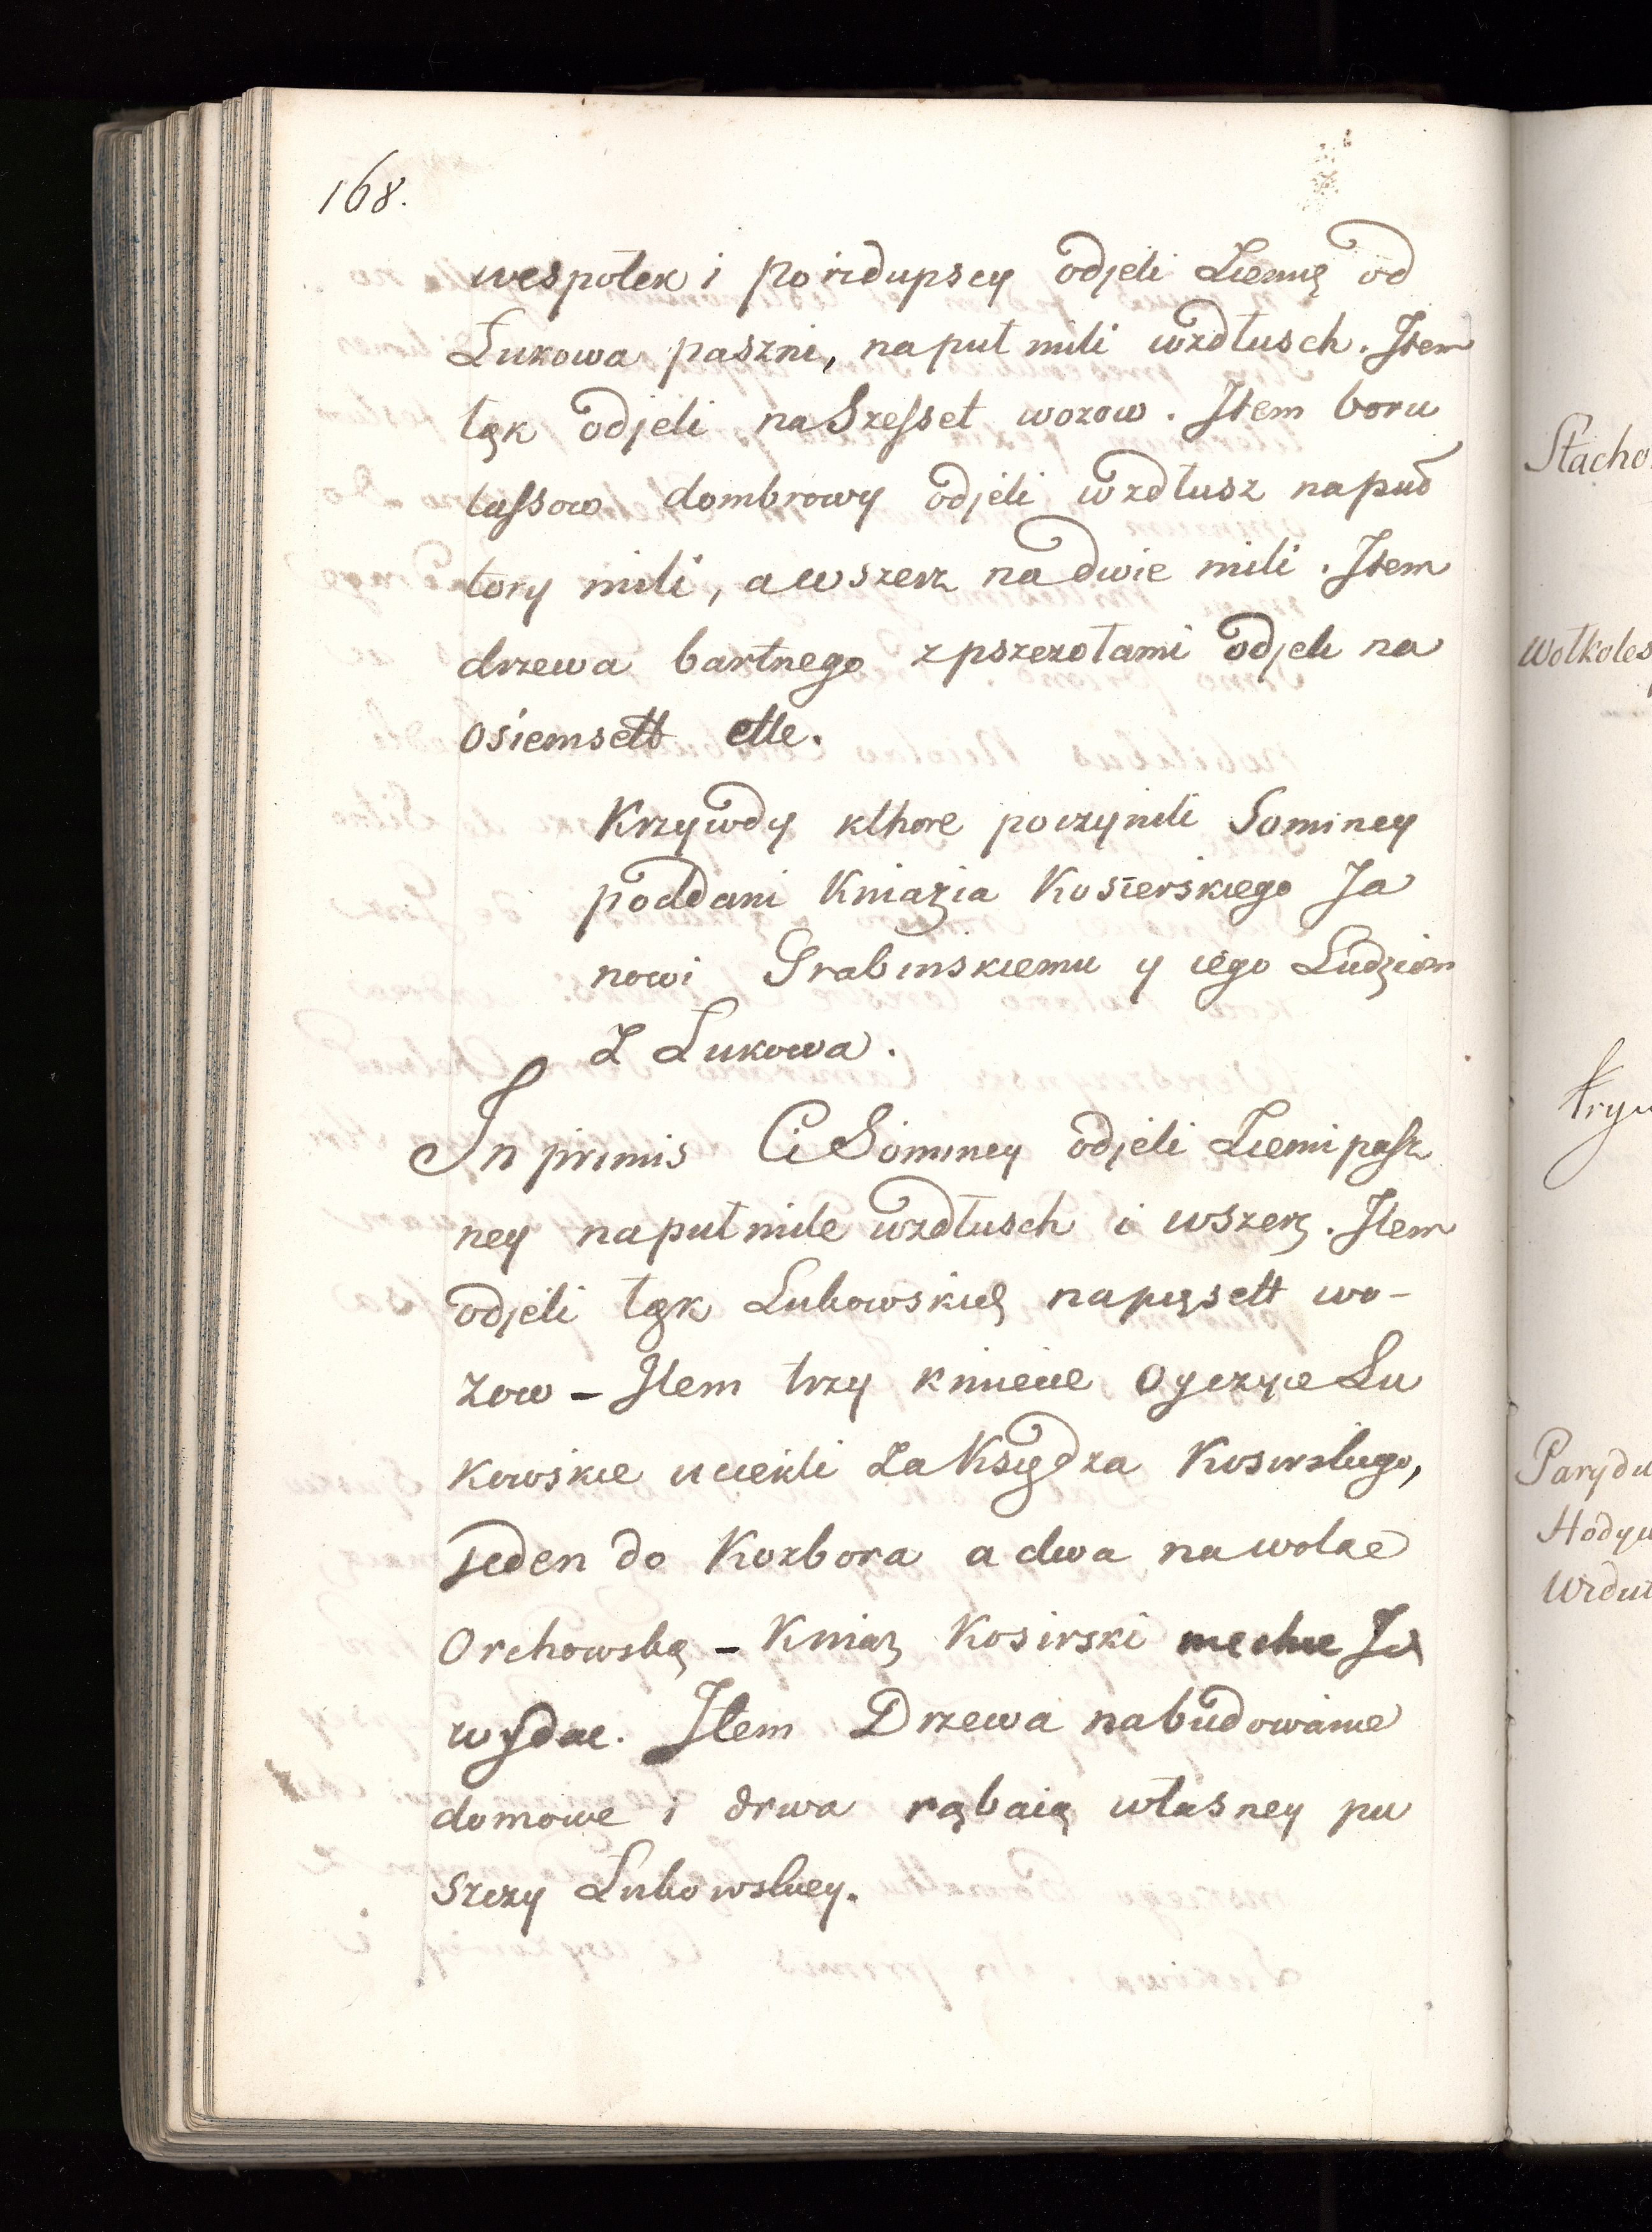 168.
wespołek i poridupscy odjeli Ziemię od
Łukowa paszni, na puł mili wzdłusch. Item
łąk odjeli na Szesset wozow. Item boru
lassow dombrowy odjeli wzdłusz na puł
tory mili, a wszerz na dwie mili. Item
drzewa bartnego z pszezołami odjeli na
osiemsett ette.
Krzywdy kthore poczynili Somincy
poddani Kniazia Kosierskiego Ja
nowi Grabinskiemu y iego Ludziom
Z Lukowa.
In primis Ci Somincy odjeli Ziemi pasz
ney na puł mile wzdłusch i wszerz. Item
odjeli łąk Lukowskię na pięsett wo-
zow – Item trzy kmiecie Oyczyce Lu
kowskie uciekli Za Ksiydza Kosirskiego,
Jeden do Kozbora a dwa na wolae
Orchowską – Kniaz Kosirski niechce Ja
wydac. Item Drzewa na budowanie
domowe i drwa rąbaią własney pu
szczy Lukowskiey.
Stacho
Wołkoles
Parydu
Hodyw